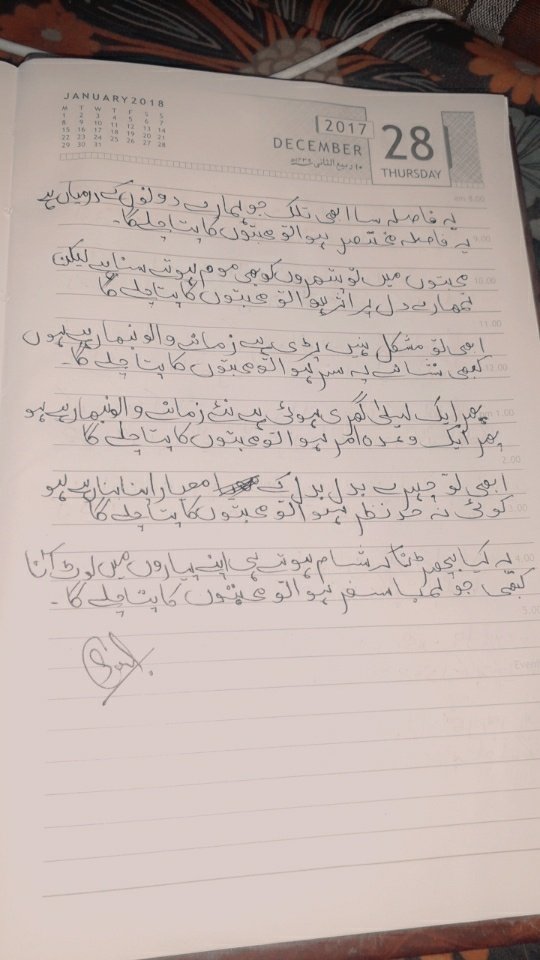 JANUARY 2018
M T W T F S S
1 2 3 4 5 6 7
8 9 10 11 12 13 14
15 16 17 18 19 20 21
22 23 24 25 26 27 28
29 30 31
2017
DECEMBER
28
THURSDAY
یہ فاصلہ سا ابھی تلک جو ہمارے دونوں کے درمیاں ہے
یہ فاصلہ مختصر ہوا تو محبتوں کا پتا چلے گا۔
محبتوں میں تو پتھروں کو بھی موم ہوتے سنا ہے لیکن
تمھارے دل پر اثر ہوا تو محبتوں کا پتا چلے گا
ابھی تو مشکل نہیں پڑی ہے زمانے والو نبھا رہے ہوں
کبھی شانے پہ سر ہوا تو محبتوں کا پتا چلے گا۔
پھر ایک لیلیٰ ہوئی ہے نئے زمانے والو نبھا رہے ہو
پھر ایک وعدہ امر ہوا تو محبتوں کا پتا چلے گا
ابھی تو چہرے بدل بدل کے معیار اپنا بنا رہے ہو
کوئی نہ حد نظر ہوا تو محبتوں کا پتا چلے گا
یہ کیا بچھڑنا کہ شام ہوتے ہی اپنے پیاروں میں لوٹ آنا
کبھی جو لمبا سفر ہوا تو محبتوں کا پتا چلے گا۔